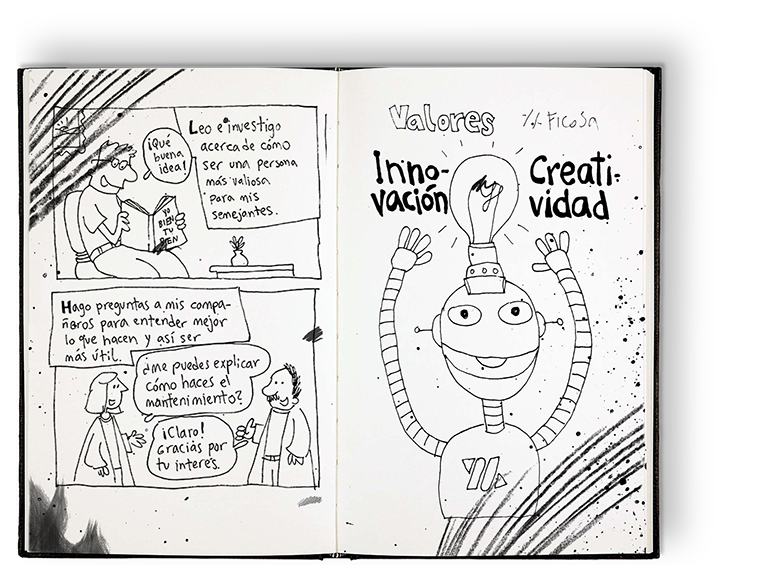 Leo e investigo
acerca de cómo
ser una persona
más valiosa
para mis
semejantes.
¡Qué
buena
idea!
YO
BIEN
TU
BIEN
Hago preguntas a mis compa-
ñeros para entender mejor
lo que hacen y así ser
más útil.
¿me puedes explicar
cómo haces el
mantenimiento?
¡Claro!
Gracias por
tu interés.
Valores
Ficosa
Inno-
vación
Creati-
vidad